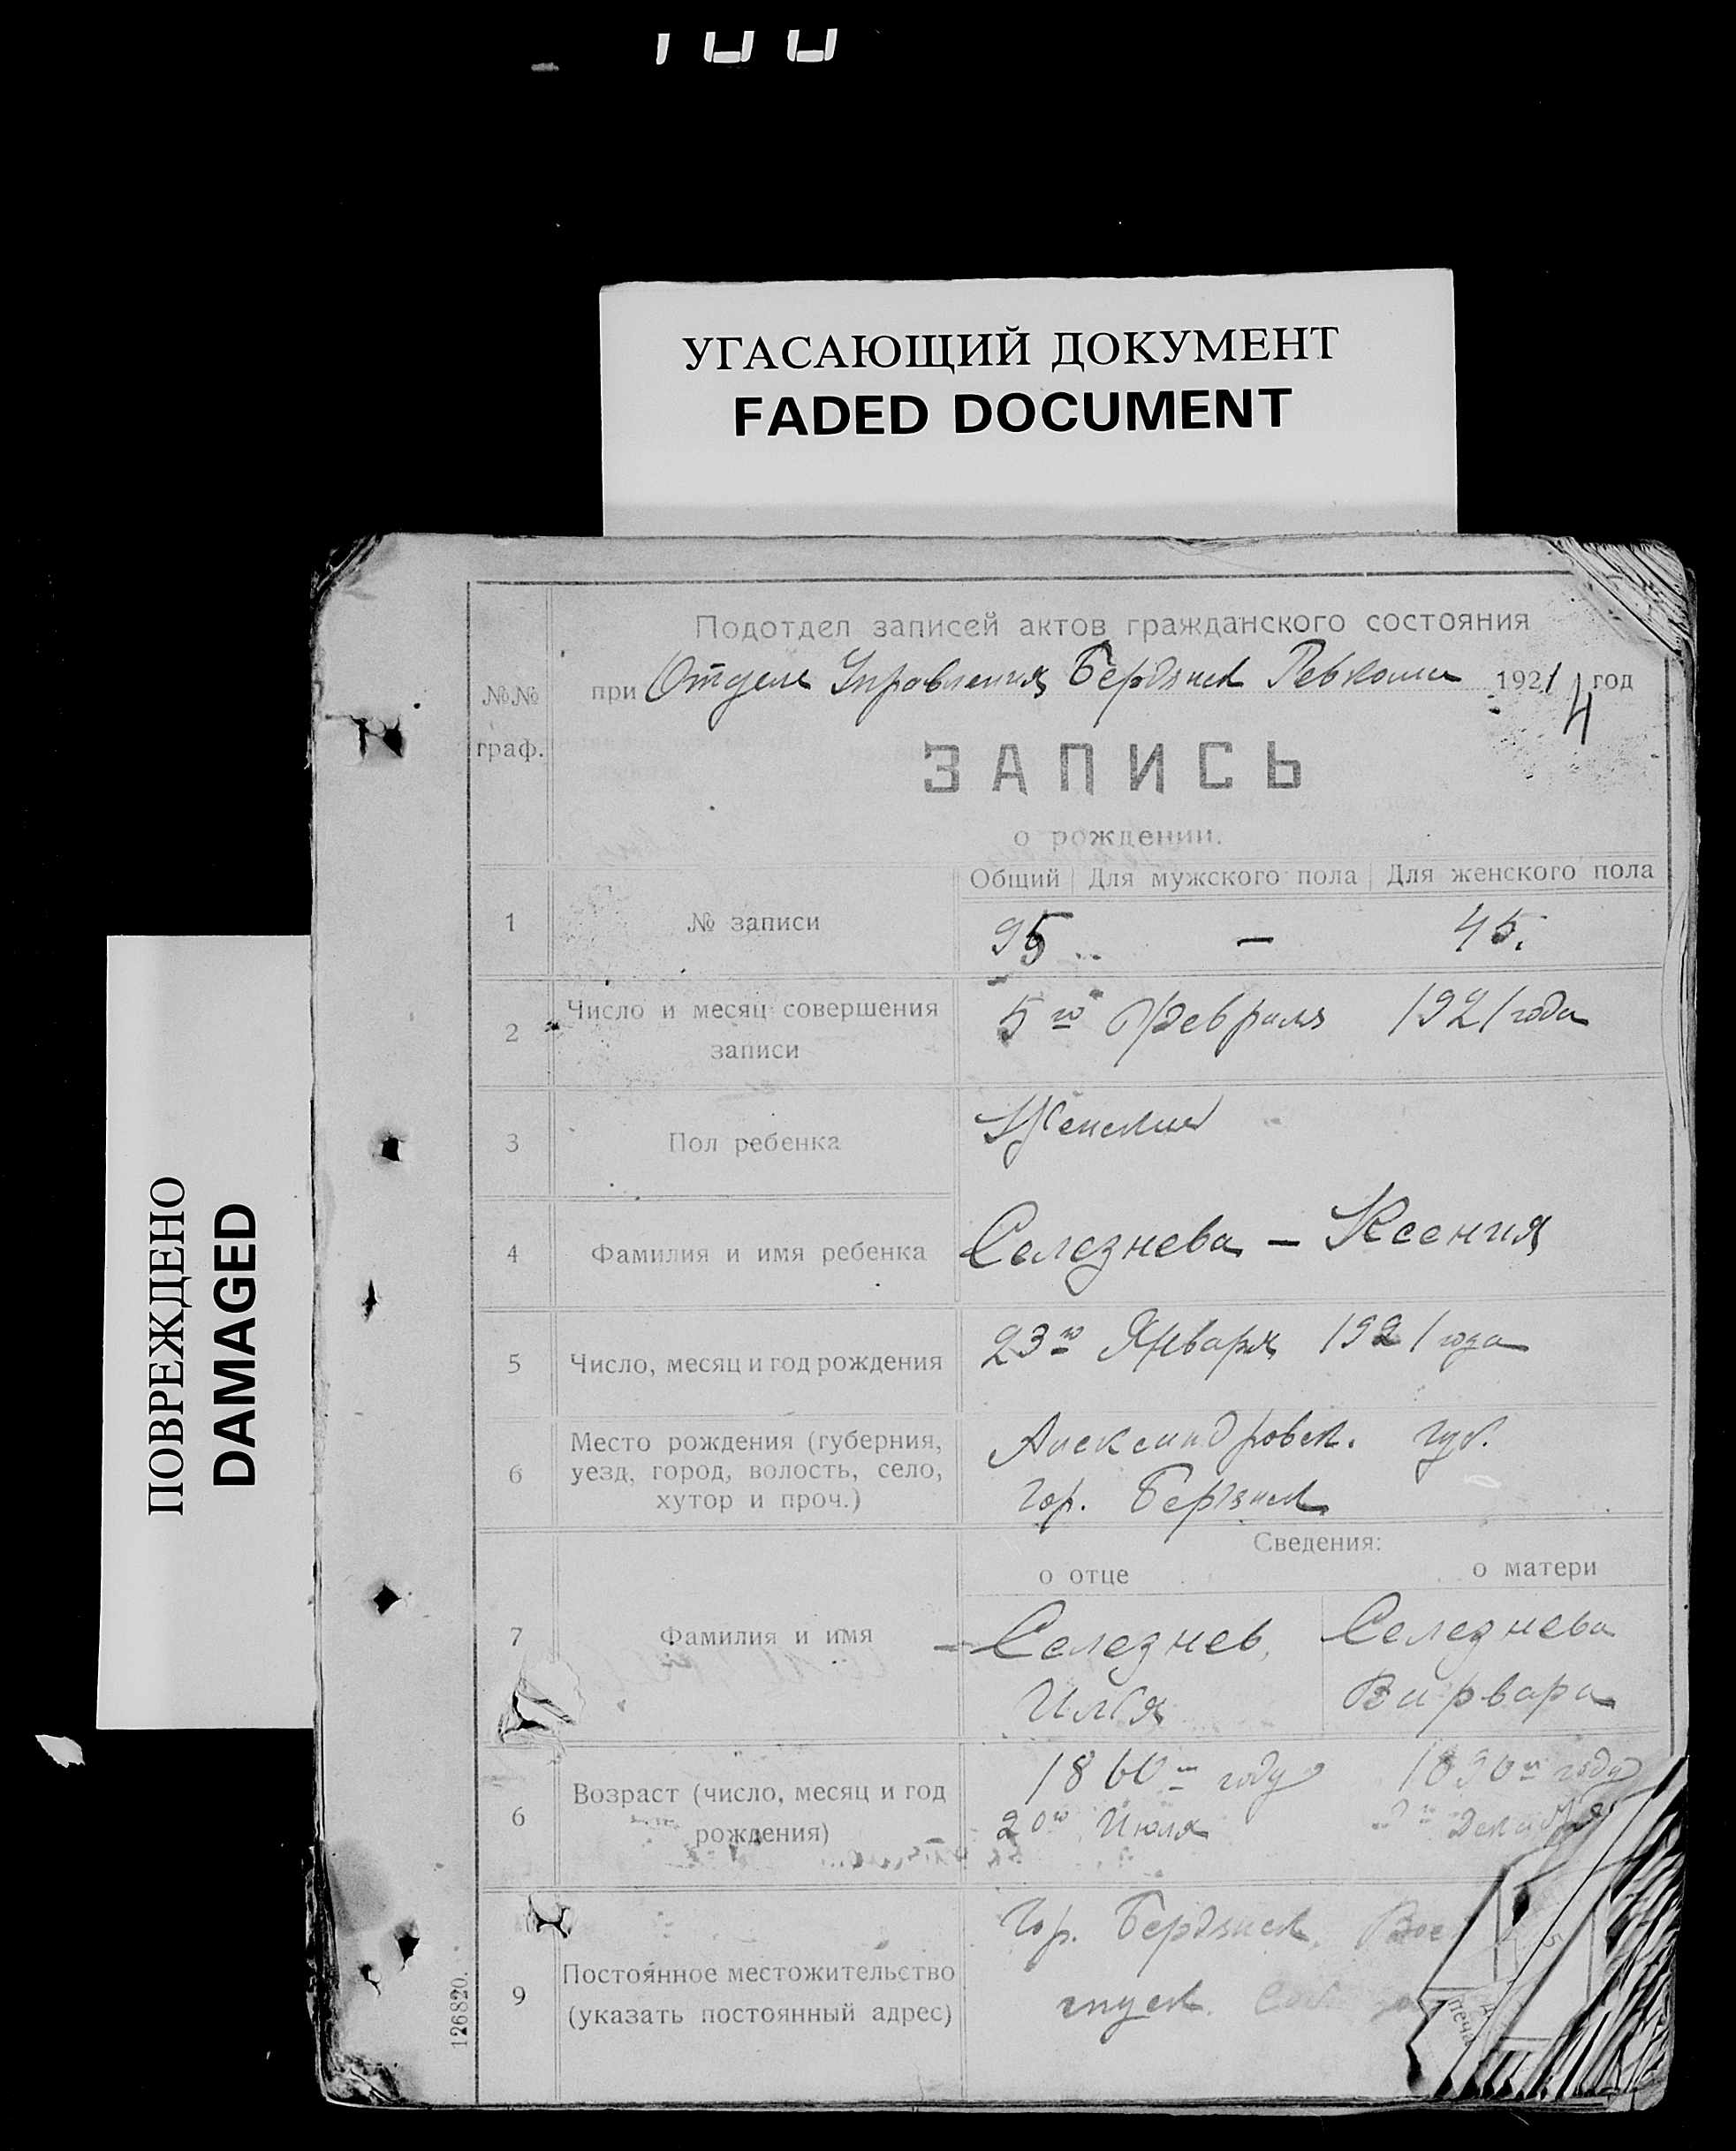 УГАСАЮЩИЙ ДОКУМЕНТ
FADED DOCUMENT
ПОВРЕЖДЕНО
DAMAGED
Подотдел записей актов гражданского состояния
при Отделе Управления Бердянск Ревкома 1921 год
4
№№ граф.
ЗАПИСЬ
о рождении.
Общий Для мужского пола Для женского пола
1 № записи 95 — 45.
2 Число и месяц совершения записи 5го Февраля 1921 года
3 Пол ребенка Женский
4 Фамилия и имя ребенка Селезнева — Ксения
5 Число, месяц и год рождения 23го Января 1921 года
6 Место рождения (губерния, Александровск. губ.
уезд, город, волость, село, гор. Бердянск
хутор и проч.)
Сведения:
о отце о матери
7 Фамилия и имя Селезнев Селезнева
Илья Варвара
6 Возраст (число, месяц и год году году
рождения) 20го Июля
9 Постоянное местожительство Гор. Бердянск
(указать постоянный адрес)
126820.